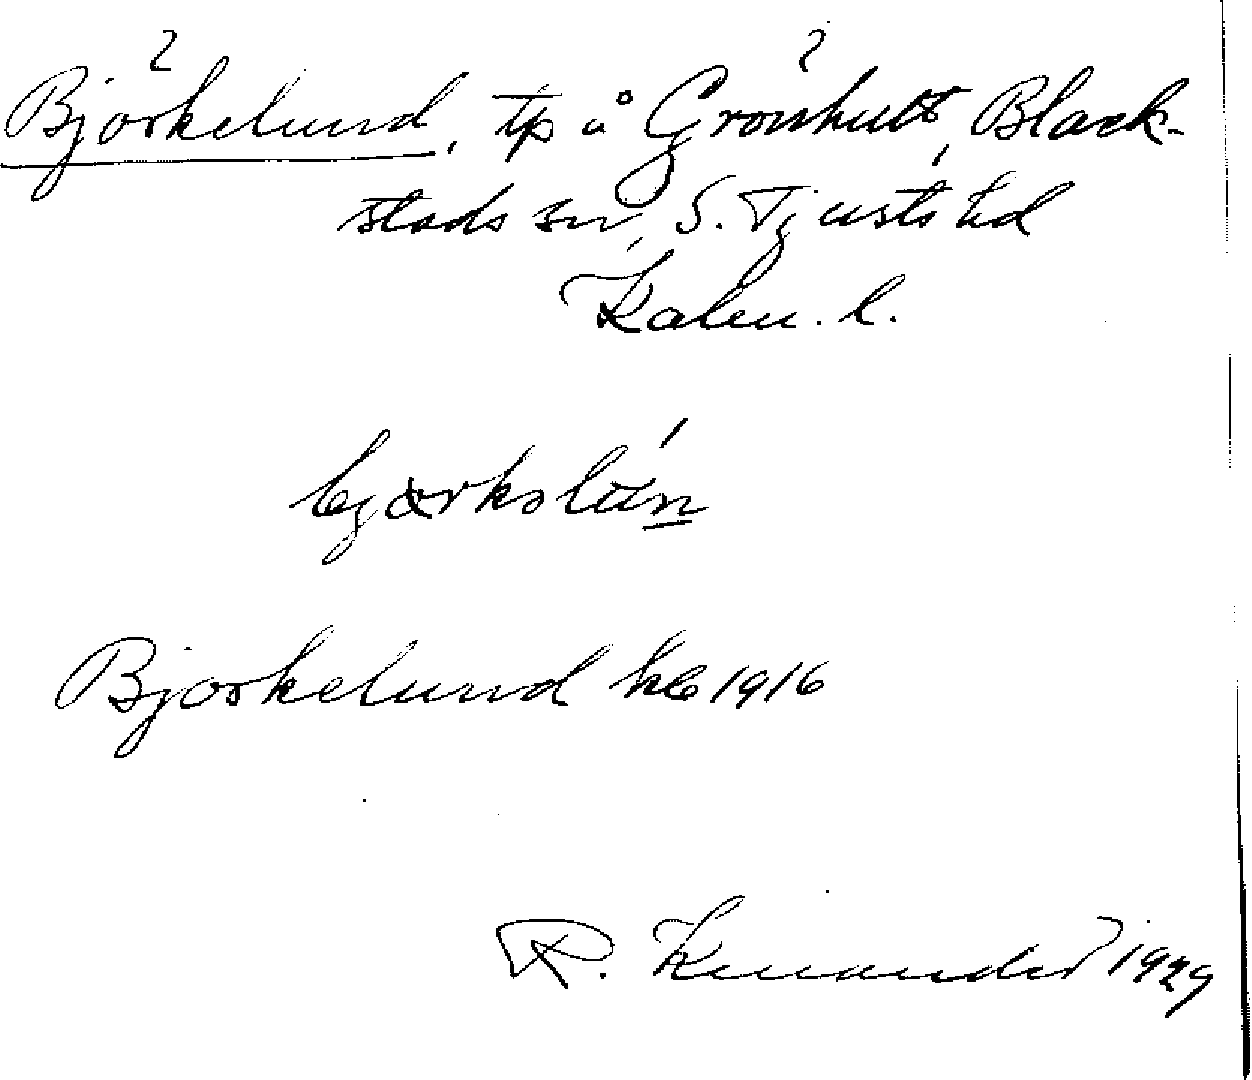 Björkelund, tp å Grönhult, Black-
stads sn, S. Tjusts hd
Kalm. l.
björkəlún
Björkelund kb 1916
R. Kenander 1929